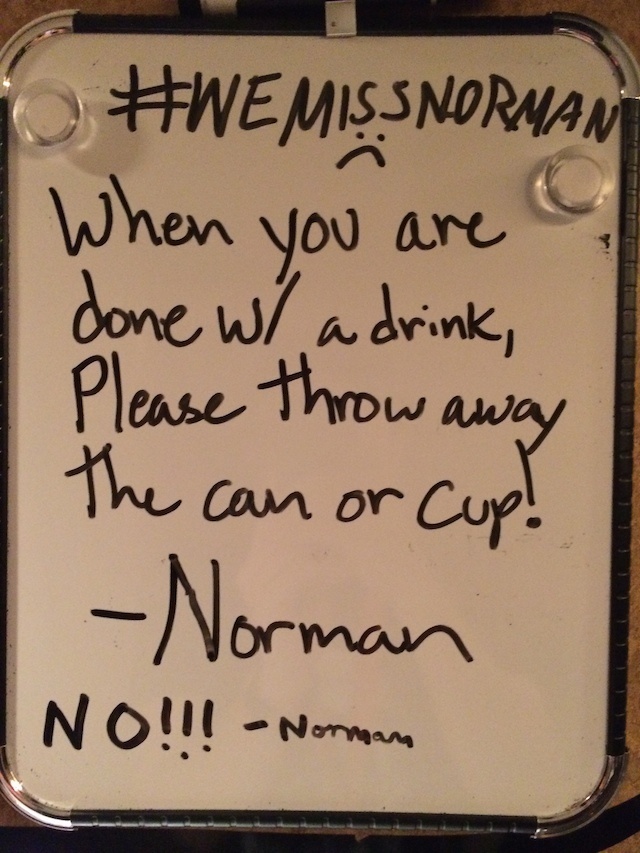 #WEMISSNORMAN
When you are
done w/ a drink,
Please throw away
the can or cup!
-Norman
NO!!! - Norman